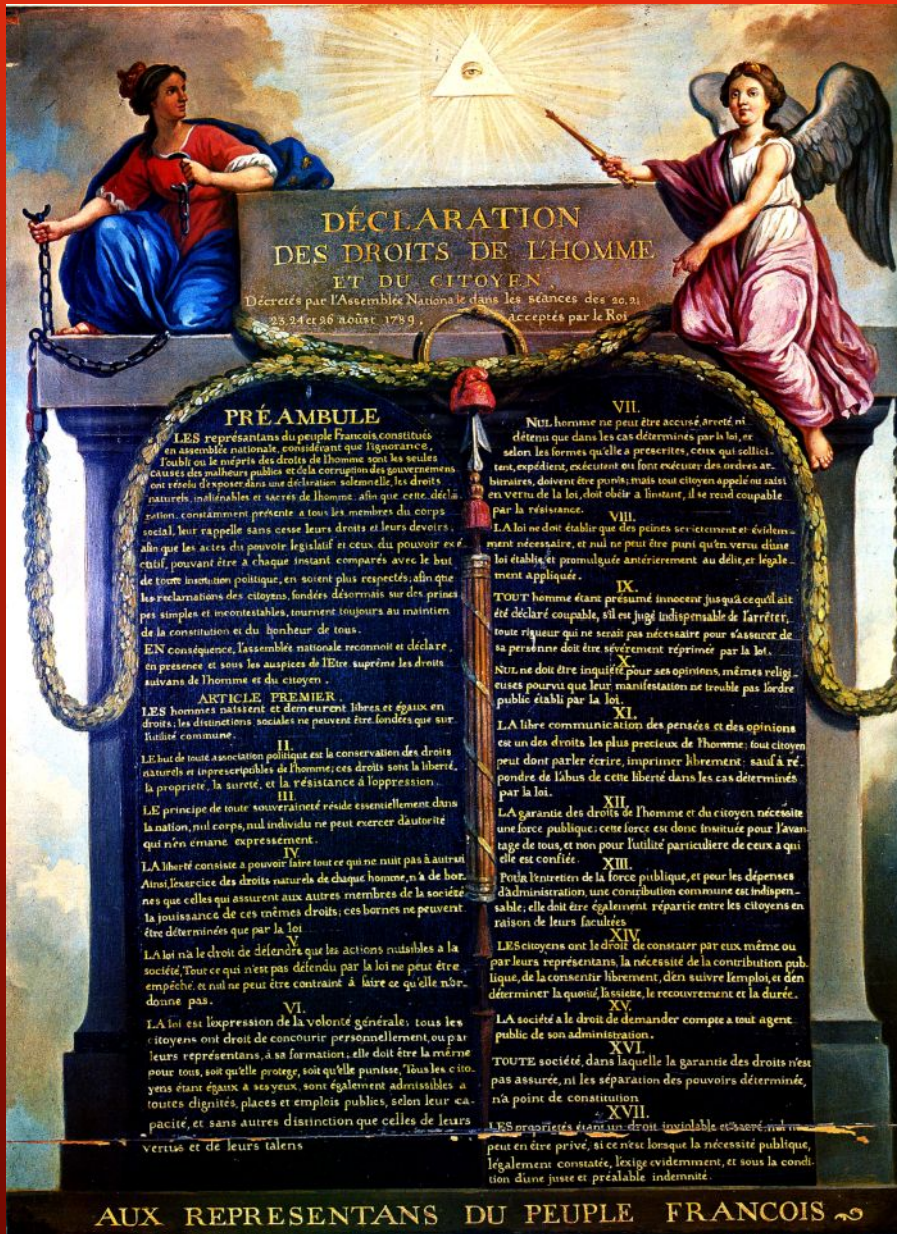 DÉCLARATION
DES DROITS DE L'HOMME
ET DU CITOYEN,
Décretés par l'Assemblée Nationale dans les séances des 20, 21
23, 24 et 26 août 1789, acceptés par le Roi
PRÉAMBULE
LES représentans du peuple Francois, constitués
en assemblée nationale, considérant que l'ignorance,
l'oubli ou le mépris des droits de l'homme sont les seules
causes des malheurs publics et de la corruption des gouvernemens
ont résolu d'exposer, dans une déclaration solemnelle, les droits
naturels, inaliénables et sacrés de l'homme; afin que cette décla
ration, constamment présente a tous les membres du corps
social, leur rappelle sans cesse leurs droits et leurs devoirs,
afin que les actes du pouvoir legislatif et ceux du pouvoir exé
cutif, pouvant être à chaque instant comparés avec le but
de toute institution politique, en soient plus respectés; afin que
les reclamations des citoyens, fondées désormais sur des princi
pes simples et incontestables, tournent toujours au maintien
de la constitution et du bonheur de tous.
EN conséquence, l'assemblée nationale reconnoit et déclare,
en presence et sous les auspices de l'Etre suprême les droits
suivans de l'homme et du citoyen.
ARTICLE PREMIER.
LES hommes naissent et demeurent libres et égaux en
droits; les distinctions sociales ne peuvent être fondées que sur
l'utilité commune.
II.
LE but de toute association politique est la conservation des droits
naturels et inprescriptibles de l'homme; ces droits sont la liberté,
la propriete, la sureté, et la résistance à l'oppression.
III.
LE principe de toute souveraineté réside essentiellement dans
la nation, nul corps, nul individu ne peut exercer d'autorité
qui n'en émane expressément.
IV.
LA liberté consiste a pouvoir faire tout ce qui ne nuit pas à autrui
Ainsi, l'exercice des droits naturels de chaque homme, n'a de bor-
nes que celles qui assurent aux autres membres de la société
la jouissance de ces mêmes droits; ces bornes ne peuvent
être déterminées que par la loi
V.
LA loi n'a le droit de défendre que les actions nuisibles a la
société, Tout ce qui n'est pas défendu par la loi ne peut être
empêché, et nul ne peut être contraint à faire ce qu'elle n'or-
donne pas.
VI.
LA loi est l'expression de la volonté générale; tous les
citoyens ont droit de concourir personnellement, ou par
leurs représentans, à sa formation; elle doit être la même
pour tous, soit qu'elle protege, soit qu'elle punisse, Tous les cito-
yens étant égaux a ses yeux, sont également admissibles a
toutes dignités, places et emplois publics, selon leur ca-
pacité, et sans autres distinction que celles de leurs
vertus et de leurs talens
VII.
NUL homme ne peut être accusé, arreté, ni
détenu que dans les cas déterminés par la loi, et
selon les formes qu'elle a prescrites, ceux qui sollici-
tent, expédient, exécutent ou font exécuter des ordres ar-
bitraires, doivent être punis; mais tout citoyen appelé ou saisi
en vertu de la loi, doit obéir a l'instant, il se rend coupable
par la résistance.
VIII.
LA loi ne doit établir que des peines strictement et évidem-
ment nécessaire, et nul ne peut être puni qu'en vertu d'une
loi établie, et promulguée antérierement au délit, et légale-
ment appliquée.
IX.
TOUT homme étant présumé innocent jusqu'a ce qu'il ait
été déclaré coupable, s'il est jugé indispensable de l'arrêter,
toute rigueur qui ne serait pas nécessaire pour s'assurer de
sa personne doit être sévèrement réprimée par la loi.
X.
NUL ne doit être inquiété pour ses opinions, mêmes religi-
euses pourvu que leur manifestation ne trouble pas l'ordre
public établi par la loi.
XI.
LA libre communication des pensées et des opinions
est un des droits les plus precieux de l'homme; tout citoyen
peut dont parler écrire, imprimer librement; sauf à ré-
pondre de l'abus de cette liberté dans les cas déterminés
par la loi.
XII.
LA garantie des droits de l'homme et du citoyen nécessite
une force publique; cette force est donc instituée pour l'avan
tage de tous, et non pour l'utilité particuliere de ceux a qui
elle est confiée.
XIII.
POUR l'entretien de la force publique, et pour les dépenses
d'administration, une contribution commune est indispen-
sable; elle doit être également répartie entre les citoyens en
raison de leurs facultées
XIV.
LES citoyens ont le droit de constater par eux même ou
par leurs représentans, la nécessité de la contribution pub-
lique, de la consentir librement, d'en suivre l'emploi, et d'en
déterminer la quotité, l'assiette, le recouvrement et la durée.
XV.
LA société a le droit de demander compte a tout agent
public de son administration.
XVI.
TOUTE société, dans laquelle la garantie des droits n'est
pas assurée, ni les séparation des pouvoirs déterminée,
n'a point de constitution
XVII.
LES propriétés étant un droit inviolable et sacré, nul ne
peut en être privé, si ce n'est lorsque la nécessité publique,
légalement constatée, l'exige evidemment, et sous la condi-
tion d'une juste et préalable indemnité.
AUX REPRESENTANS DU PEUPLE FRANCOIS